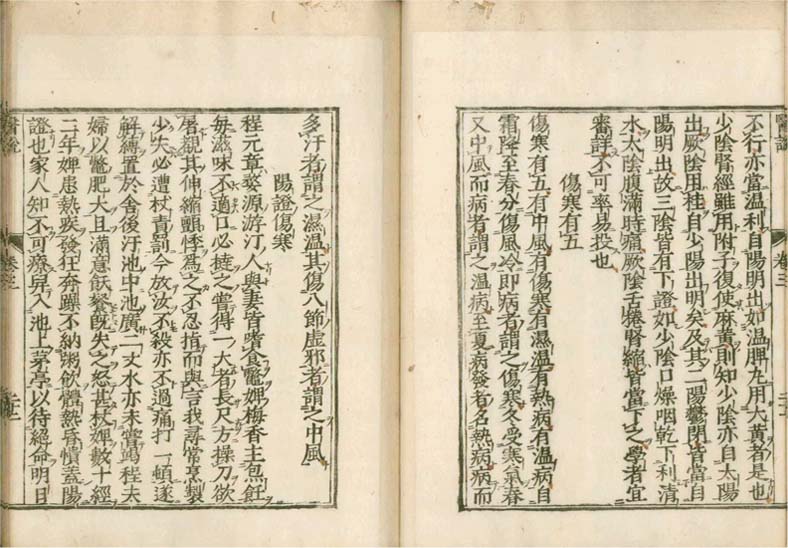 不行亦當溫利自陽明出如溫脾丸用大黃者是也
少陰腎經雖用附子復使麻黃則知少陰亦自太陽
出厥陰用桂自少陽出明矣及其二陽鬱閉皆當自
陽明出故三陰皆有下證如少陰口燥咽乾下利清
水太陰腹滿時痛厥陰舌捲腎縮皆當下之學者宜
審詳不可率易投也
傷寒有五
傷寒有五有中風有傷寒有濕溫有熱病有溫病自
霜降至春分傷風冷即病者謂之傷寒冬受寒氣春
又中風而病者謂之溫病至夏病發者名熱病病而
醫說
卷三
多汗者謂之濕溫其傷八節虛邪者謂之中風
陽證傷寒
程元章婺源游汀人與妻皆嗜食鼈婢梅香主庖飪
每滋味不適口必撻之嘗得一大者長尺方操刀欲
屠觀其伸縮顫悸為之不忍指而與言我尋常烹製
少失必遭杖責罰今放汝不殺亦不過痛打一頓遂
解縛置於舍後汙池中池廣二丈水亦未嘗竭程夫
婦以鼈肥大且滿意飫餐既失之忿甚杖婢數十經
二年婢患熱疾發狂奔躁不納粥飲體熱昏憒蓋陽
證也家人知不可療舁入池上茅亭以待絕命明日
卷三